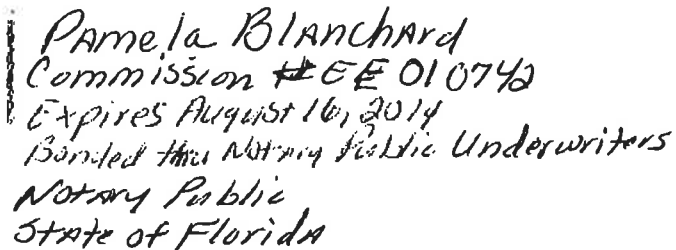 Pamela Blanchard
Commission #EE 010742
Expires August 16, 2014
Bonded thru Notary Public Underwriters
Notary Public
State of Florida